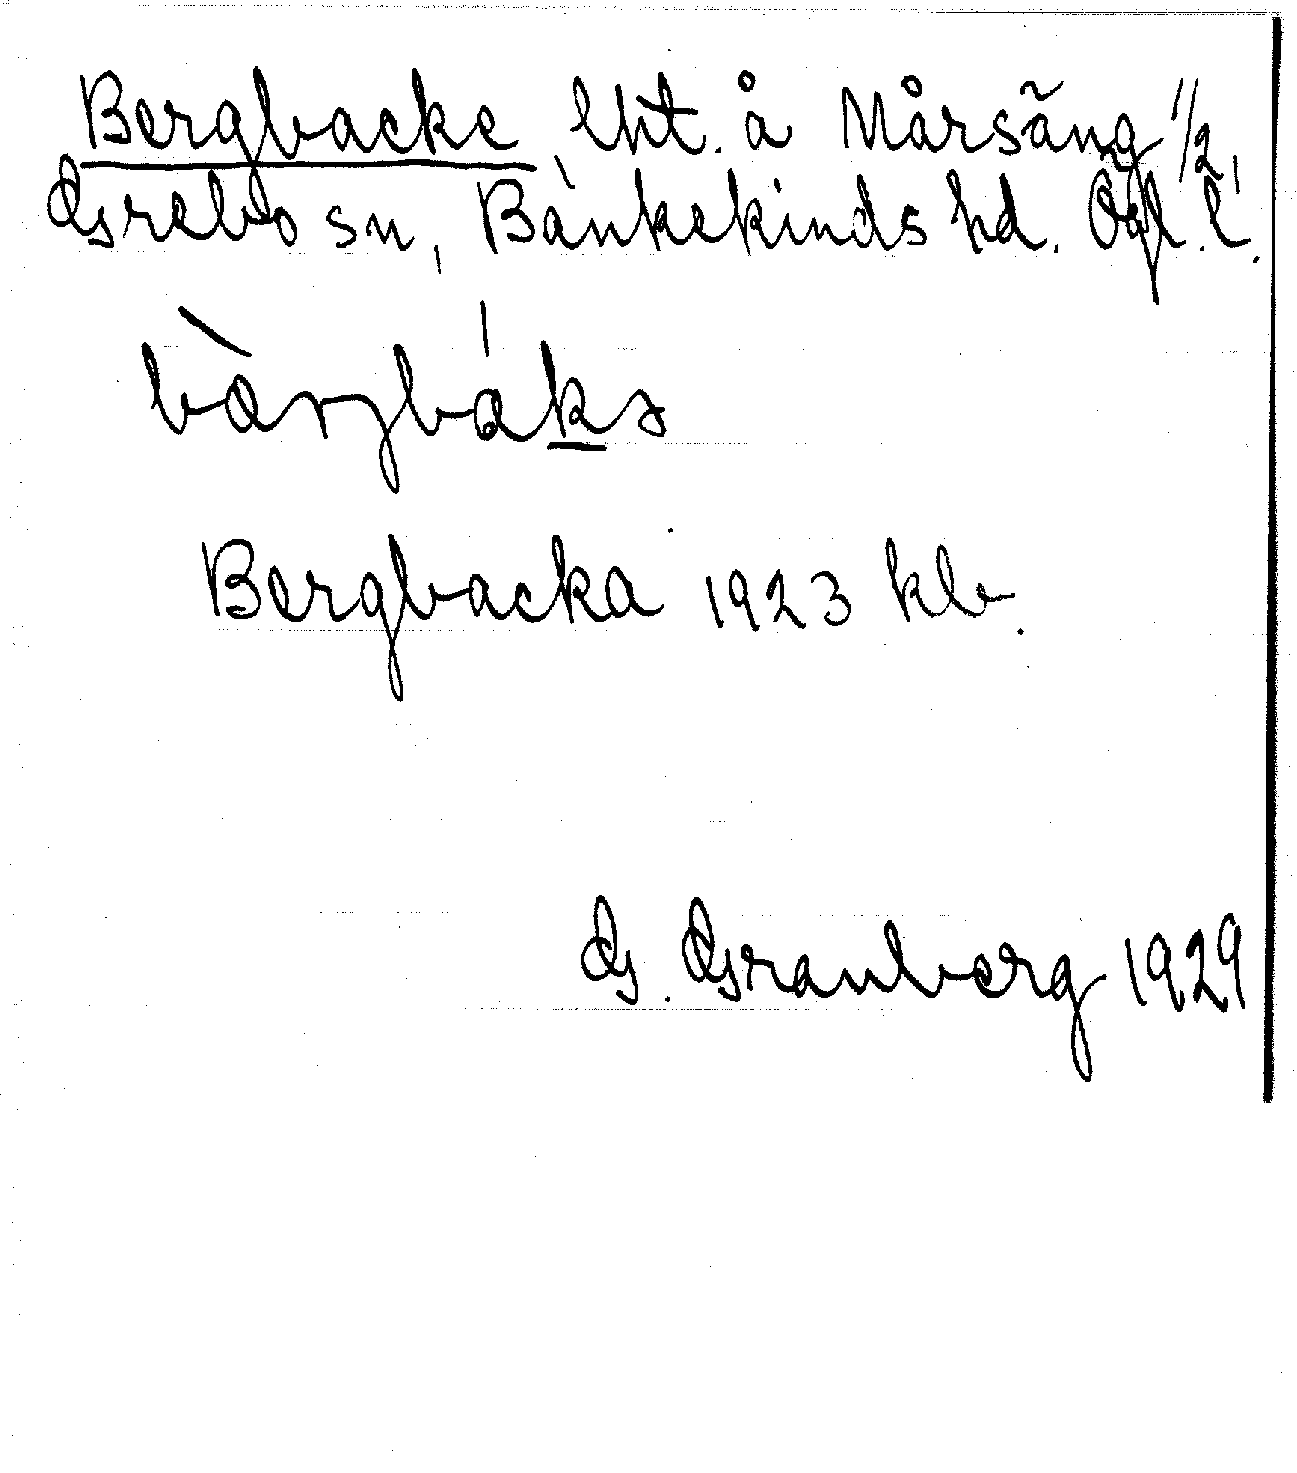 Bergbacke, lht. å Mårsäng 1/2,
Grebo sn, Bankekinds hd. Ögl. l.
bàrgbákə
Bergbacka 1923 klb.
G. Granberg 1929